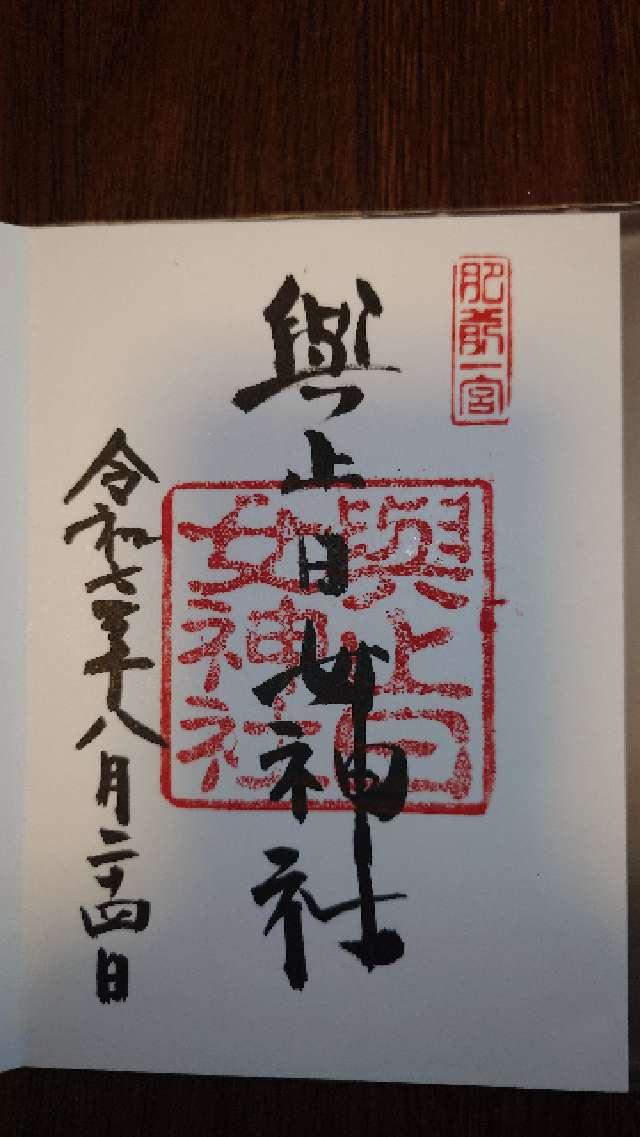 肥前一宮
與止日女神社
與止日
女神社
令和七年八月二十四日